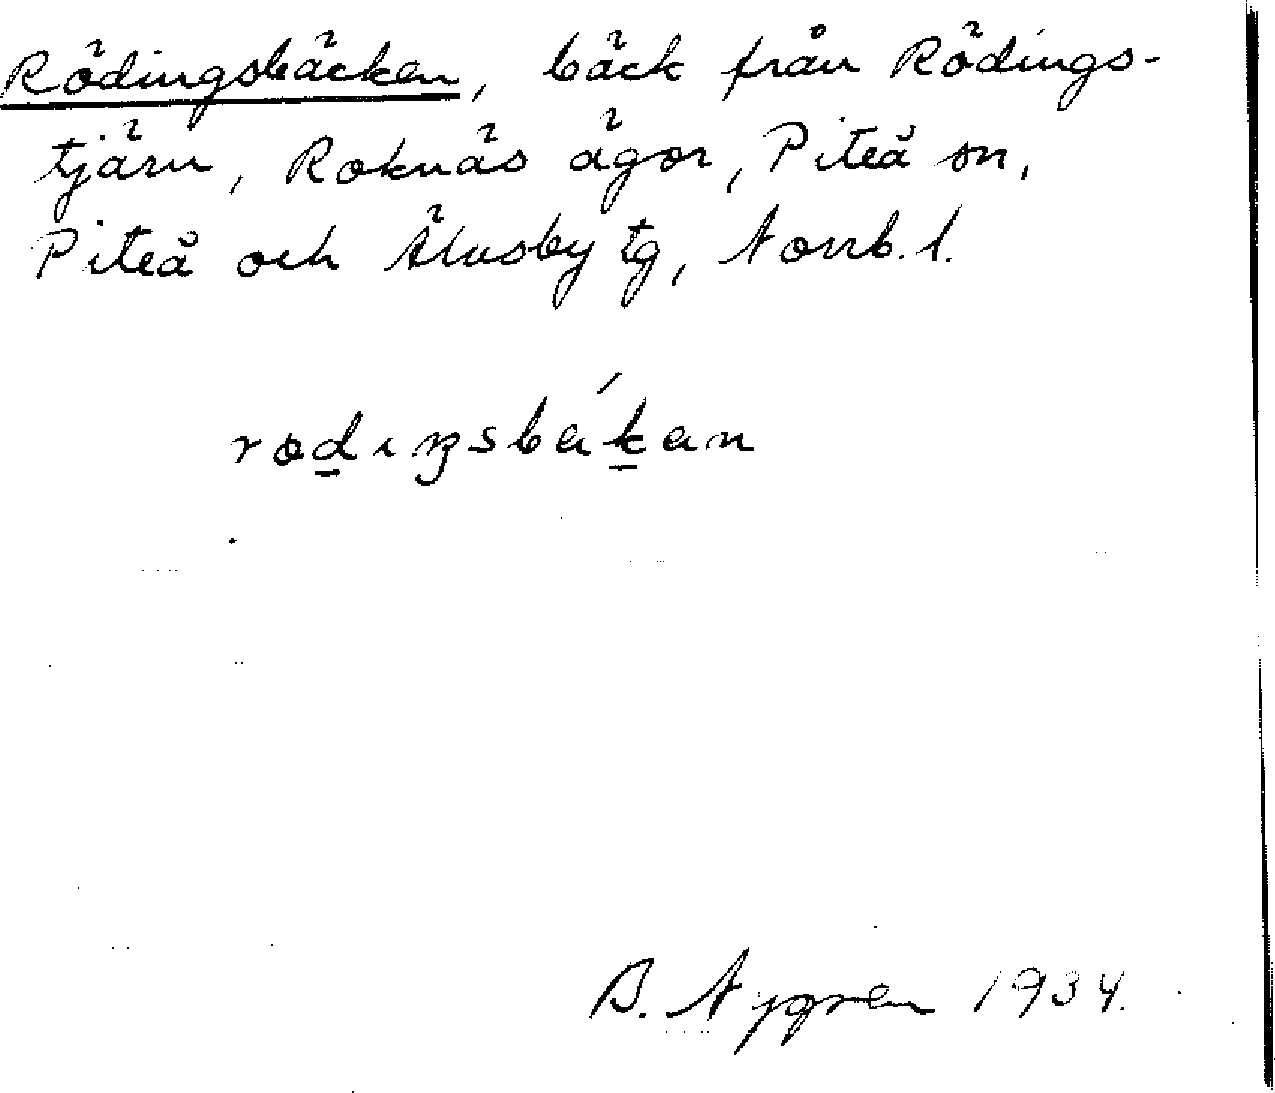 Rödingsbäcken, bäck från Rödings-
tjärn, Roknäs ägor, Piteå sn,
Piteå och Älvsby tg, Norrb. l.
rødıŋsbákan
B. Nygren 1934.